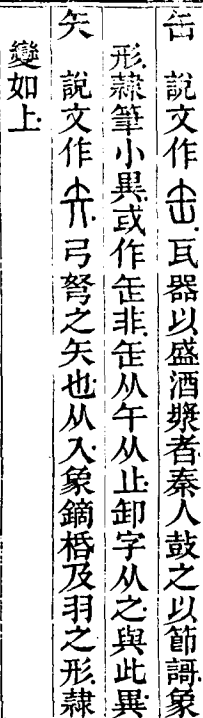 缶 說文作𦈢瓦器以盛酒漿者秦人鼓之以節謌象
形隸筆小異或作缷非缷从午从止卸字从之與此異
矢 說文作弓弩之矢也从入象鏑栝及羽之形隸
變如上